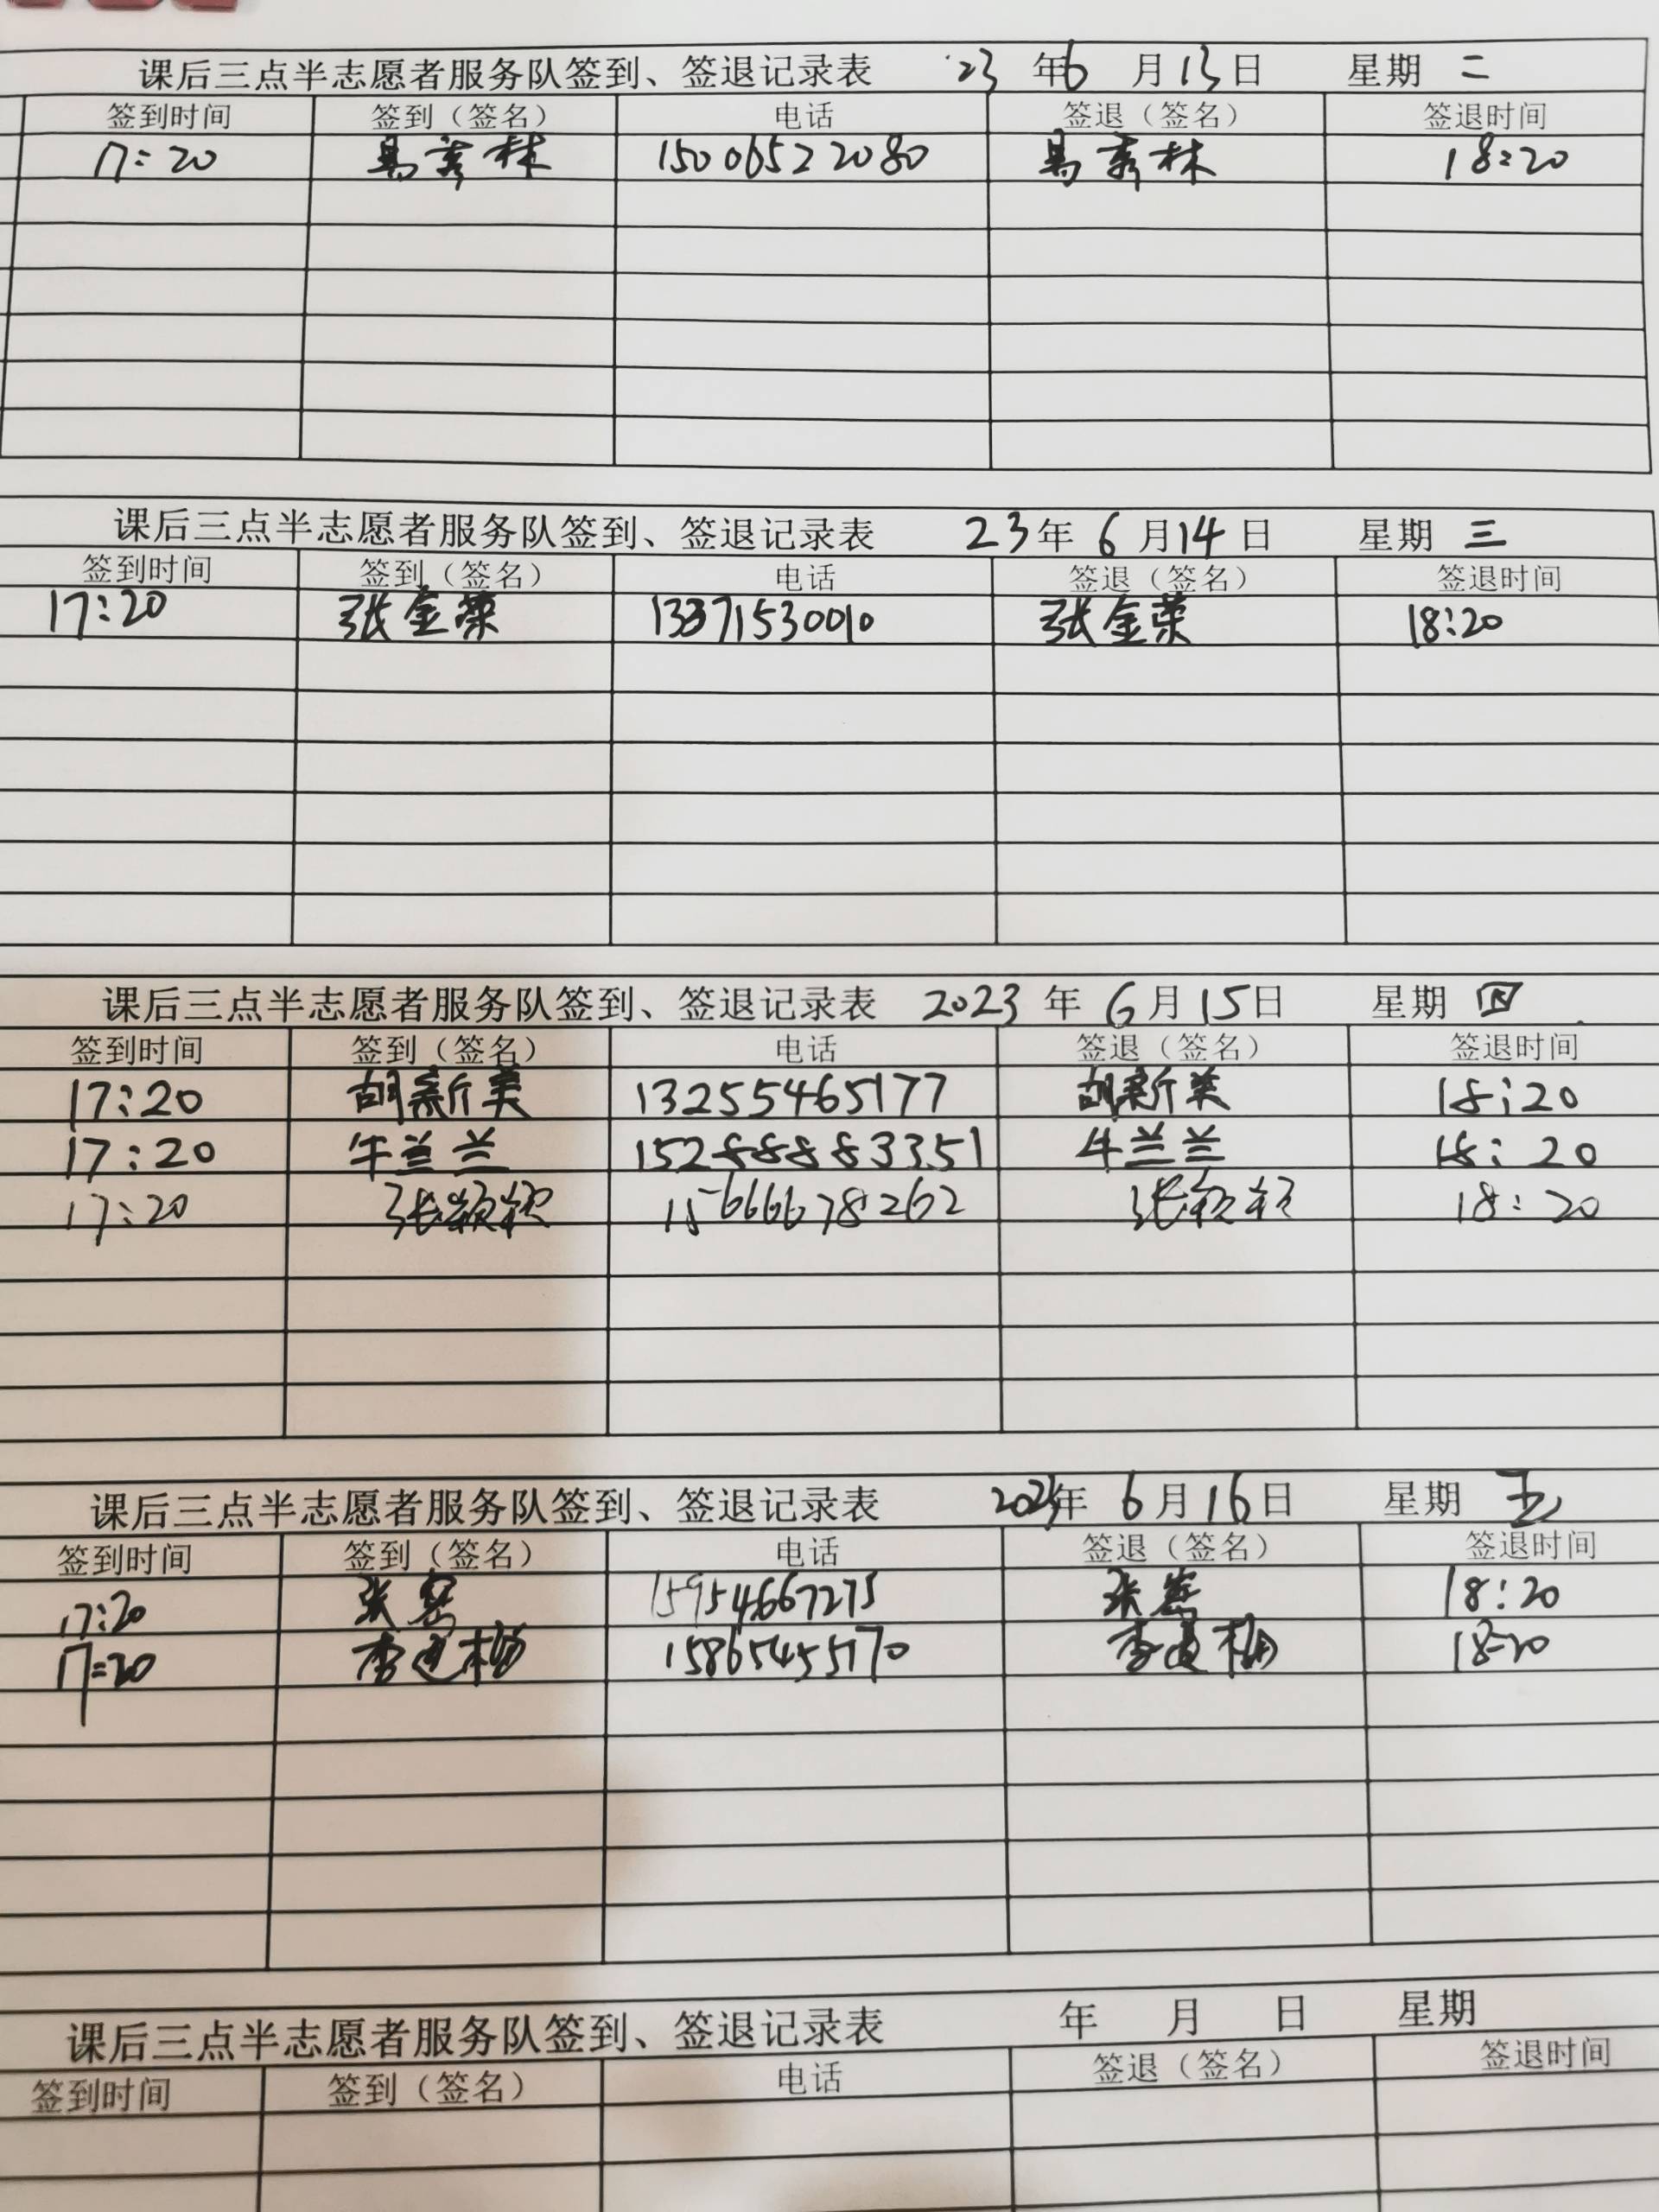 课后三点半志愿者服务队签到、签退记录表 23年6月13日 星期二
签到时间 签到（签名） 电话 签退（签名） 签退时间
17:20 秀林 15006522080 秀林 18:20
课后三点半志愿者服务队签到、签退记录表 23年6月14日 星期三
签到时间 签到（签名） 电话 签退（签名） 签退时间
17:20 张金荣 13371530010 张金荣 18:20
课后三点半志愿者服务队签到、签退记录表 2023年6月15日 星期四
签到时间 签到（签名） 电话 签退（签名） 签退时间
17:20 胡新美 13255465177 胡新美 18:20
17:20 牛兰兰 15288883351 牛兰兰 18:20
17:20 张颖颖 15666678262 张颖颖 18:20
课后三点半志愿者服务队签到、签退记录表 2023年6月16日 星期五
签到时间 签到（签名） 电话 签退（签名） 签退时间
17:20 张 15954667275 张 18:20
17:20 李建梅 15865455170 李建梅 18:20
课后三点半志愿者服务队签到、签退记录表 年 月 日 星期
签到时间 签到（签名） 电话 签退（签名） 签退时间